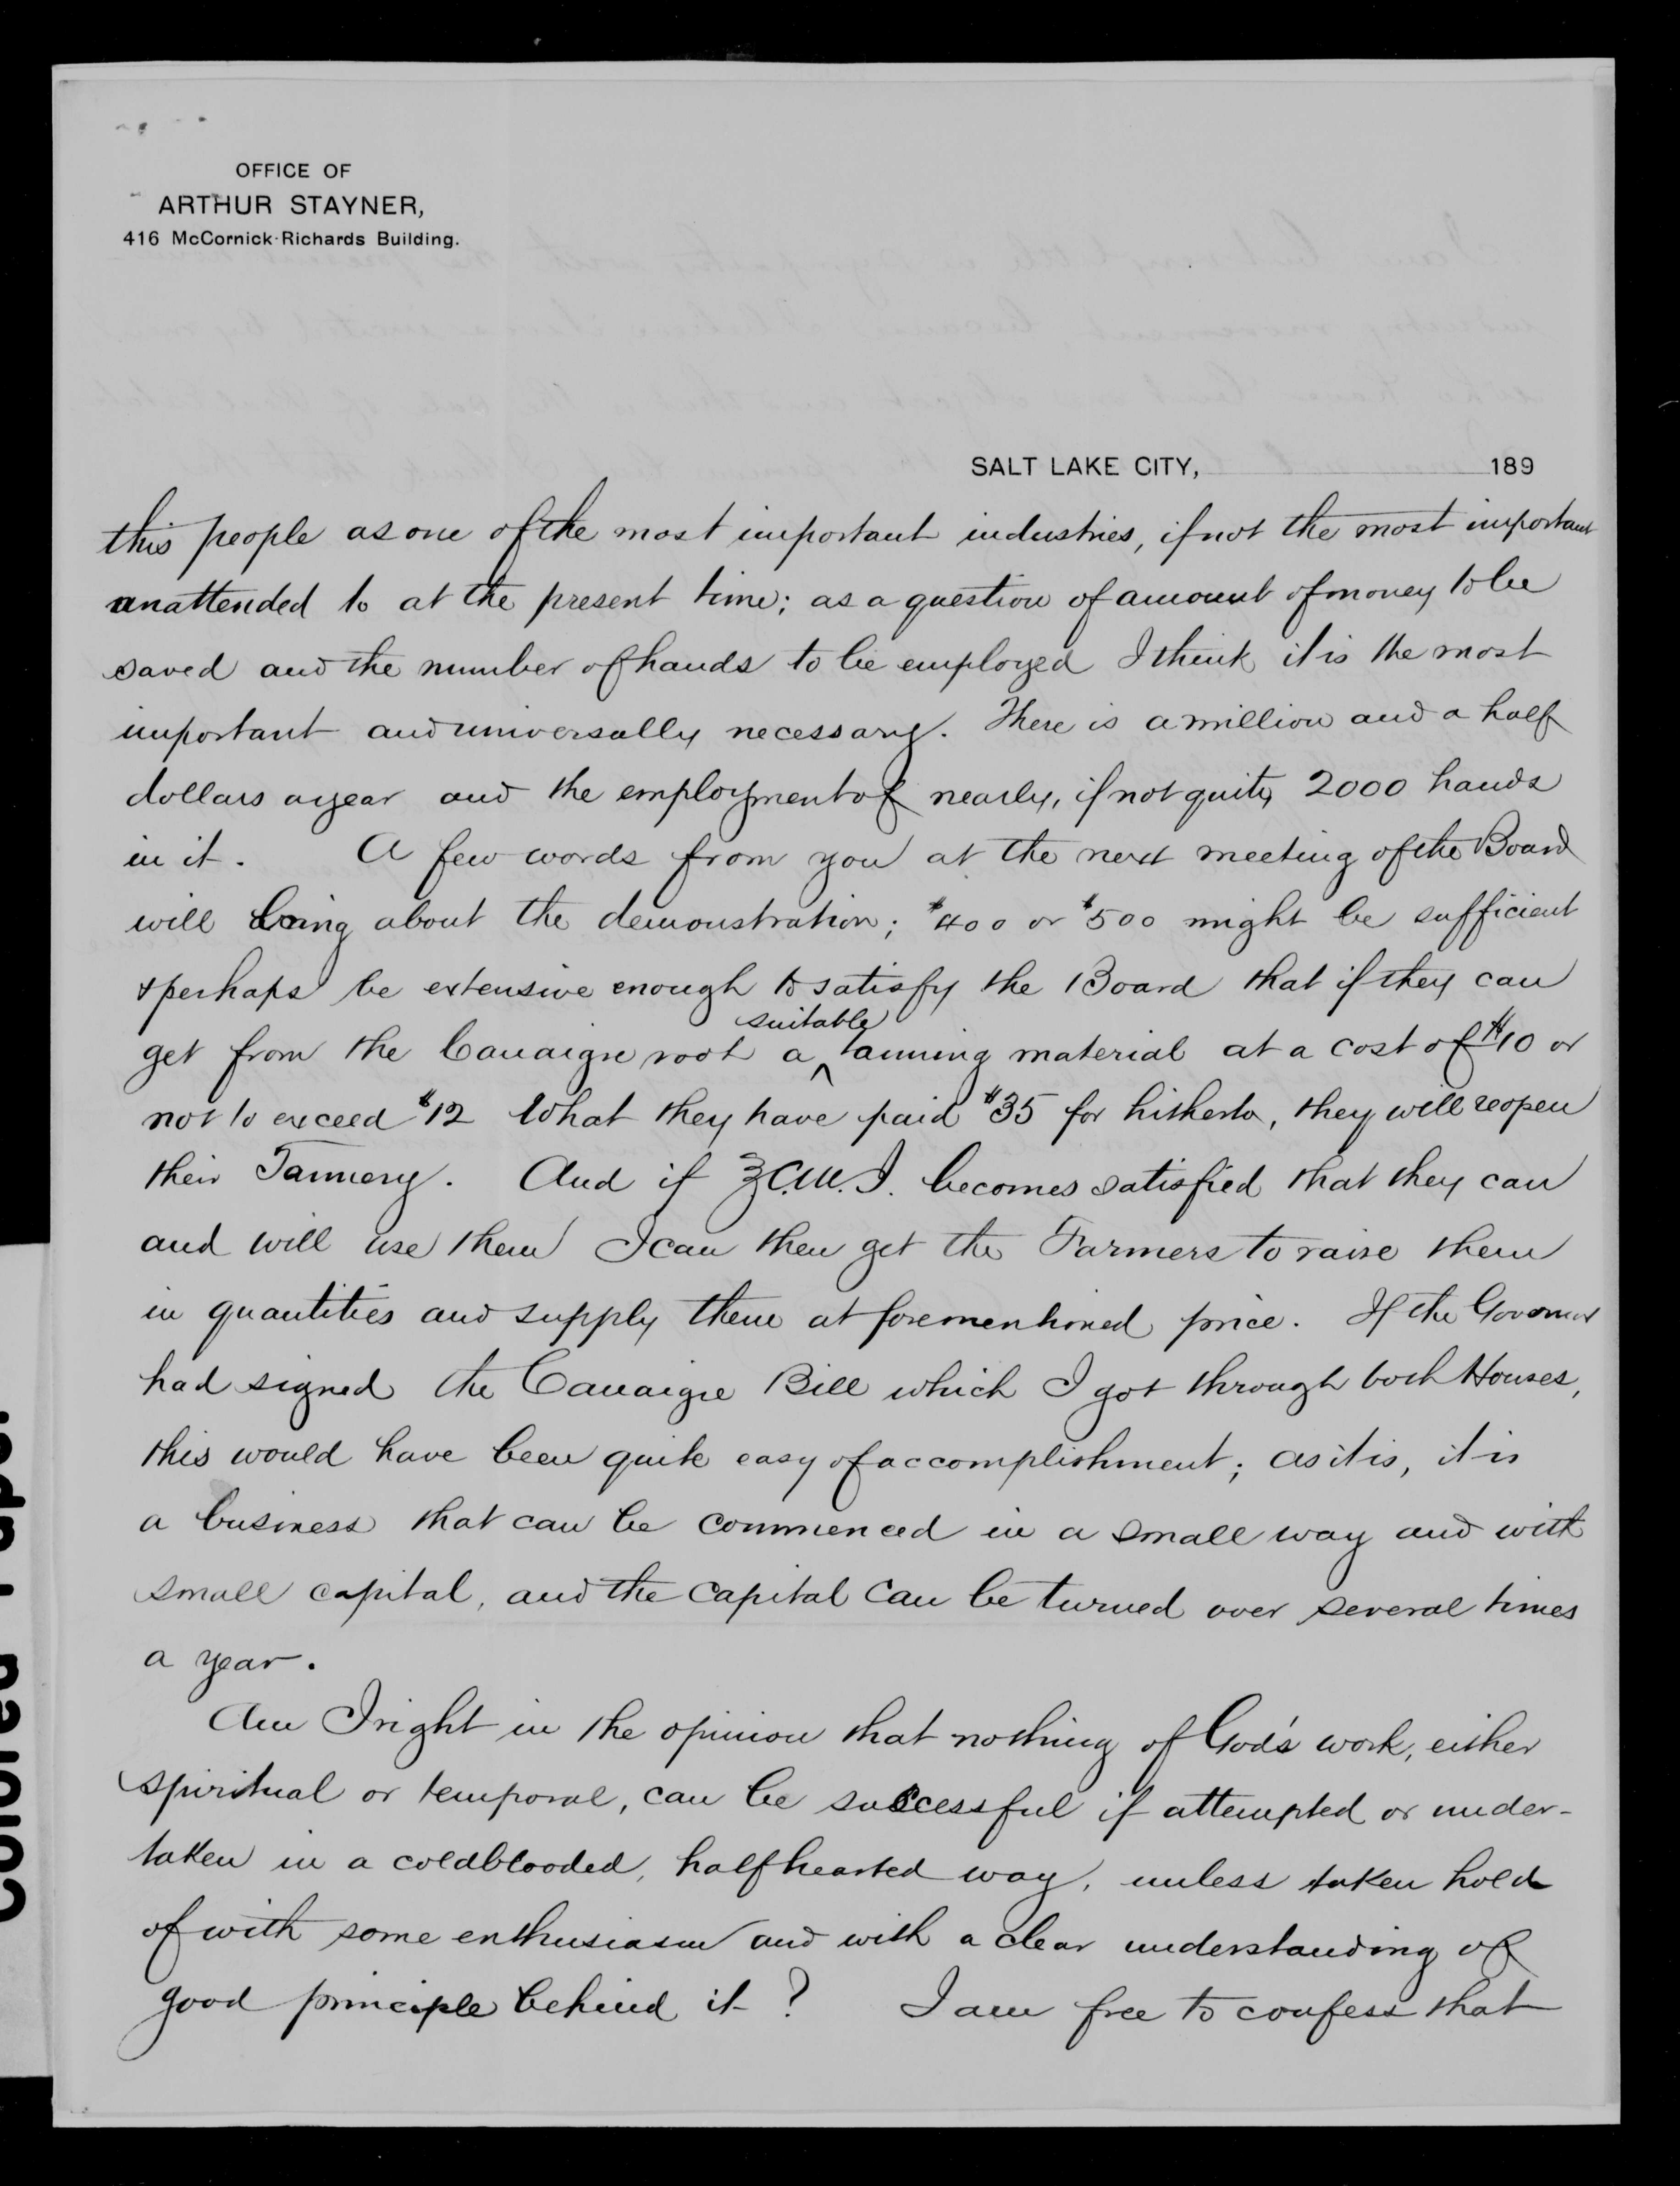 OFFICE OF
ARTHUR STAYNER,
416 McCornick-Richards Building.
SALT LAKE CITY, 189
this people as one of the most important industries, if not the most important
unattended to at the present time; as a question of amount of money to be
saved and the number of hands to be employed I think it is the most
important and universally necessary. There is a million and a half
dollars a year and the employment of nearly, if not quite, 2000 hands
in it. A few words from you at the next meeting of the Board
will bring about the demonstration; $400 or $500 might be sufficient
& perhaps be extensive enough to satisfy the Board that if they can
get from the Canaigre root a suitable tanning material at a cost of $10 or
not to exceed $12 what they have paid $35 for hitherto, they will reopen
their Tannery. And if Z.C.M.I. becomes satisfied that they can
and will use them I can then get the Farmers to raise them
in quantities and supply them at forementioned price. If the Governor
had signed the Canaigre Bill which I got through both Houses,
this would have been quite easy of accomplishment; as it is, it is
a business that can be commenced in a small way and with
small capital, and the capital can be turned over several times
a year.
Am I right in the opinion that nothing of God's work, either
spiritual or temporal, can be successful if attempted or under-
taken in a coldblooded, halfhearted way, unless taken hold
of with some enthusiasm and with a clear understanding of
good principle behind it? I am free to confess that